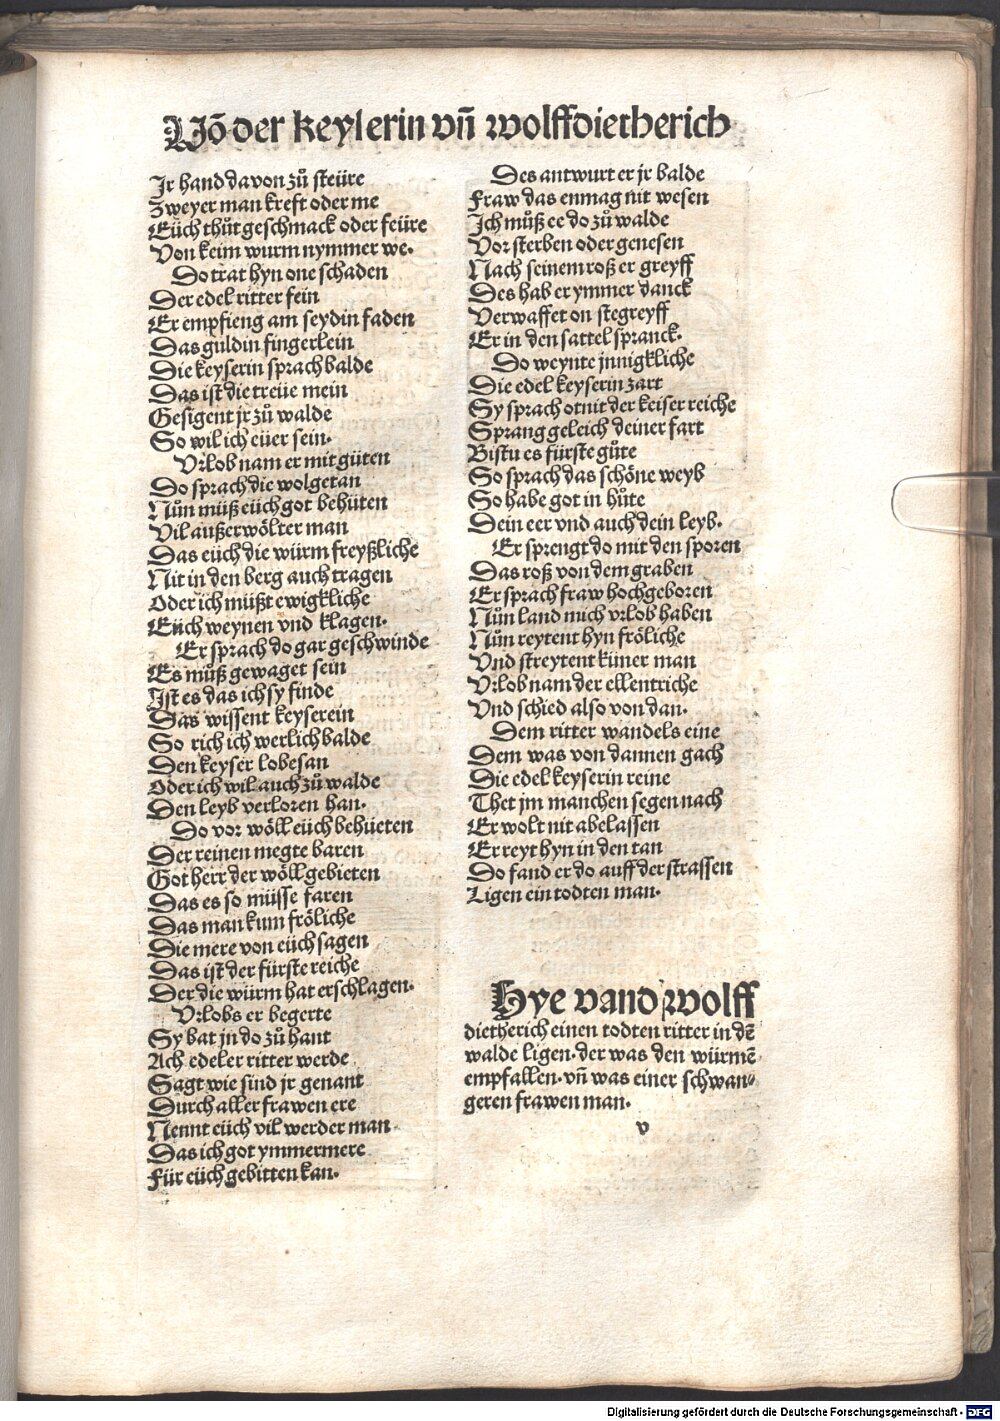 Uõ der keylerin vñ wolffdietherich
Jr hand davon zů steüre
Zweyer man kreft oder me
Eüch thůt geschmack oder feüre
Von keim wurm nymmer we.
Do trat hyn one schaden
Der edel ritter fein
Er empfieng am seydin faden
Das guldin fingerlein
Die keyserin sprach balde
Das ist die treüe mein
Gesigent jr zů walde
So wil ich eüer sein.
Vrlob nam er mit güten
Do sprach die wolgetan
Nůn můß eüch got behüten
Vil außerwölter man
Das eüch die würm freyßliche
Nit in den berg auch tragen
Oder ich müßt ewigkliche
Eüch weynen vnd klagen.
Er sprach do gar geschwinde
Es můß gewaget sein
Ist es das ich sy finde
Das wissent keyserein
So rich ich werlich balde
Den keyser lobesan
Oder ich wil auch zů walde
Den leyb verloren han.
Do vor wöll eüch behüeten
Der reinen megte baren
Got herr der wöll gebieten
Das es so müsse faren
Das man kum fröliche
Die mere von eüch sagen
Das ist der fürste reiche
Der die würm hat erschlagen.
Vrlobs er begerte
Sy bat jn do zů hant
Ach edeler ritter werde
Sagt wie sind jr genant
Durch aller frawen ere
Nennt eüch vil werder man
Das ich got ymmermere
Für eüch gebitten kan.
Des antwurt er jr balde
Fraw das enmag nit wesen
Ich můß ee do zů walde
Vor sterben oder genesen
Nach seinem roß er greyff
Des hab er ymmer danck
Verwaffet on stegreyff
Er in den sattel spranck.
Do weynte jnnigkliche
Die edel keyserin zart
Sy sprach otnit der keiser reiche
Sprang geleich deiner fart
Bistu es fürste gůte
So sprach das schöne weyb
So habe got in hůte
Dein eer vnd auch dein leyb.
Er sprengt do mit den sporen
Das roß von dem graben
Er sprach fraw hochgeboren
Nůn land mich vrlob haben
Nůn reytent hyn fröliche
Vnd streytent kümer man
Vrlob nam der ellentriche
Vnd schied also von dan.
Dem ritter wandels eine
Dem was von dannen gach
Die edel keyserin reine
Thet jm manchen segen nach
Er wolt nit abelassen
Er reyt hyn in den tan
Do fand er do auff der strassen
Ligen ein todten man.
Hye vand wolff
dietherich einen todten ritter in dẽ
walde ligen. der was den würmẽ
empfallen. vñ was einer schwan⸗
geren frawen man.
v
Digitalisierung gefördert durch die Deutsche Forschungsgemeinschaft - DFG